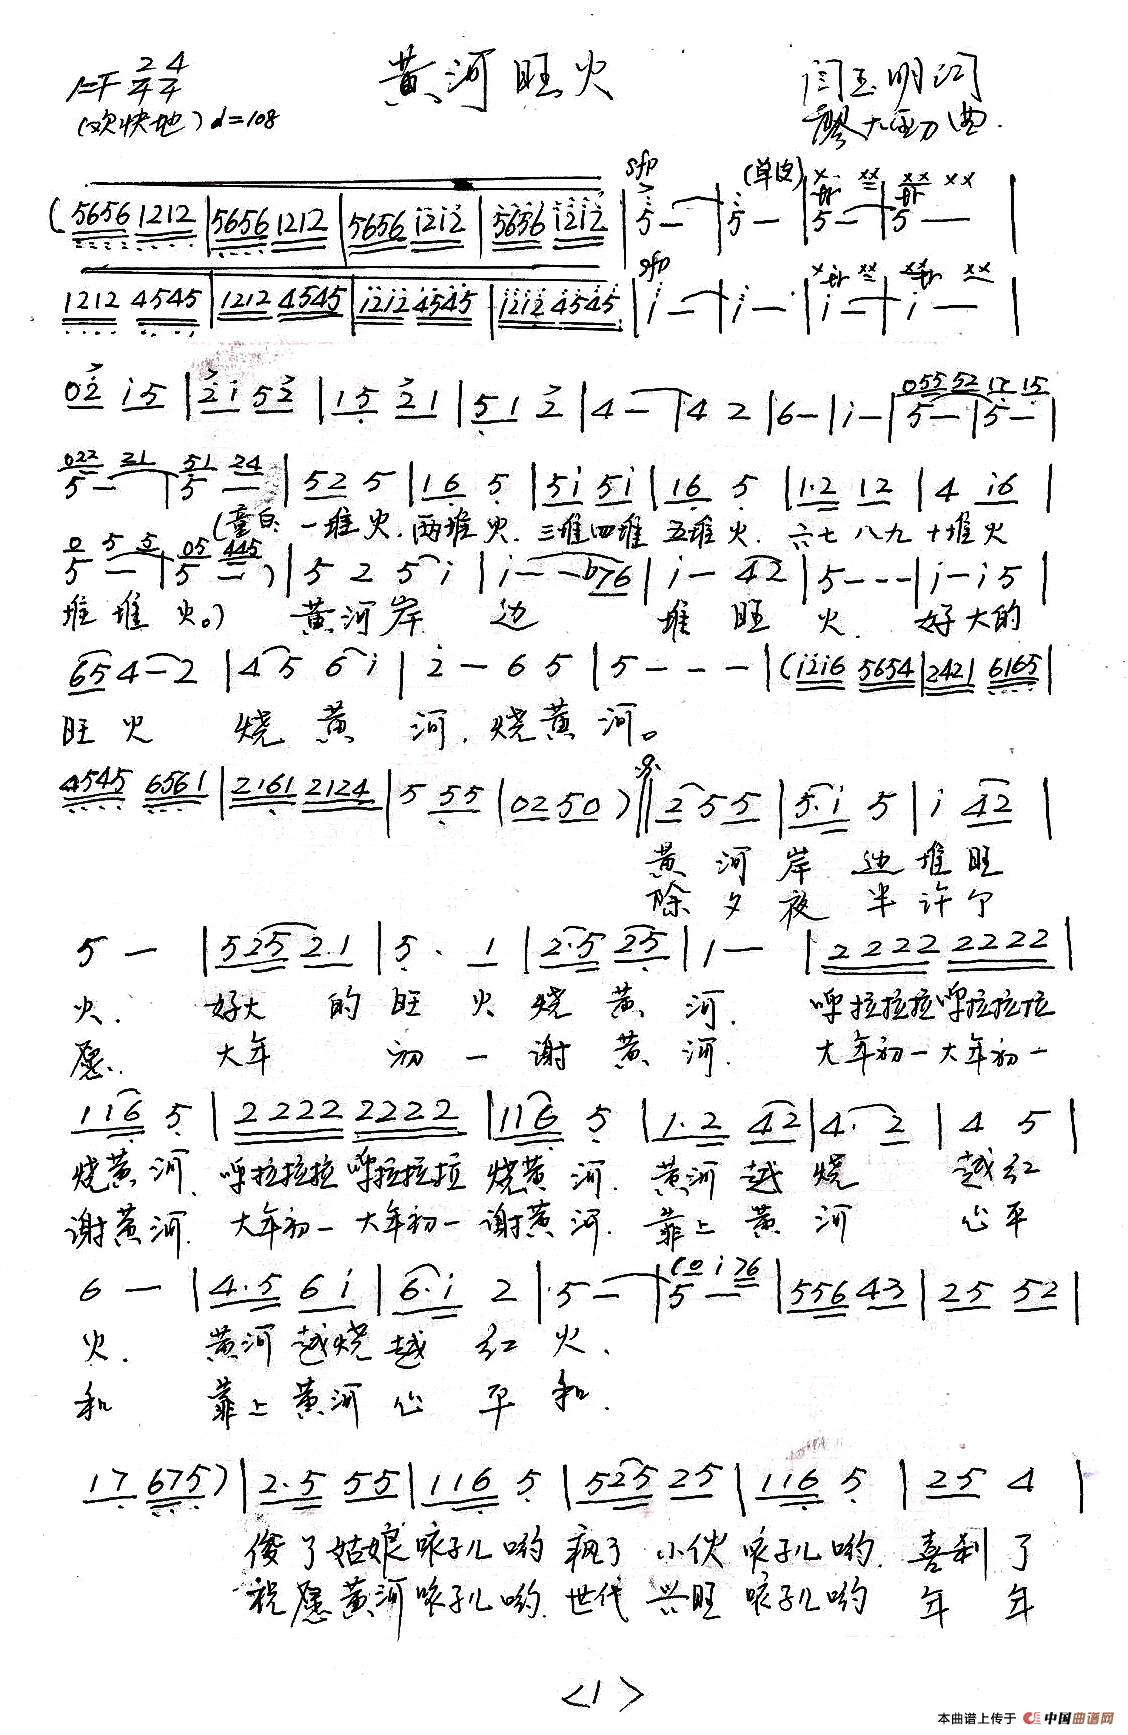 黄河旺火
1=F 2/4 4/4
闫玉明词
(欢快地) ♩=108
廖大勋曲.
sfp (单皮) x· xx xx xx
(5656 1212 | 5656 1212 | 5656 i2i2 | 5656 i2i2 | 5 — | 5 — | 5 — | 5 — |
sfp x xx xx xx
1212 4545 | 1212 4545 | i2i2 4545 | i2i2 4545 | i — | i — | i — | i — |
055 52 12 15
02 i5 | 2i 52 | 15 21 | 51 2 | 4 — | 4 2 | 6 — | i — | 5 — | 5 — |
022 21 51 24
5 — | 5 — | 52 5 | 16 5 | 5i 5i | 16 5 | 1·2 12 | 4 i6 |
(童白: 一堆火. 两堆火. 三堆四堆 五堆火. 六七八九十堆火
0 5 5 05 445
5 — | 5 — ) | 5 2 5 i | i — — b76 | i — 42 | 5 — — — | i — i 5 |
堆堆火。) 黄河岸边 堆旺火. 好大的
65 4 — 2 | 4 5 6 i | 2 — 6 5 | 5 — — — | (i2i6 5654 | 2421 6165 |
旺火 烧黄河. 烧黄河。
4545 6561 | 2161 2124 | 5 55 | 02 50 ) ‖ 2 55 | 5·i 5 | i 42 |
黄河岸边堆旺
除夕夜半许个
5 — | 525 2·1 | 5· 1 | 2·5 25 | 1 — | 2222 2222 |
火. 好大的旺火烧黄河. 呼拉拉拉呼拉拉拉
愿. 大年初一谢黄河. 大年初一大年初一
116 5 | 2222 2222 | 116 5 | 1·2 42 | 4· 2 | 4 5 |
烧黄河. 呼拉拉拉呼拉拉拉烧黄河. 黄河越烧越红
谢黄河. 大年初一大年初一谢黄河. 靠上黄河心平
(0 i 76
6 — | 4·5 6i | 6·i 2 | 5 — | 5 — | 556 43 | 25 52 |
火. 黄河越烧越红火.
和 靠上黄河心平和.
17 675 ) | 2·5 55 | 116 5 | 525 25 | 116 5 | 25 4 |
俊了姑娘咏子儿哟 疯了小伙咏子儿哟. 喜利了
祝愿黄河咏子儿哟. 世代兴旺咏子儿哟 年年
<1>
本曲谱上传于 中国曲谱网